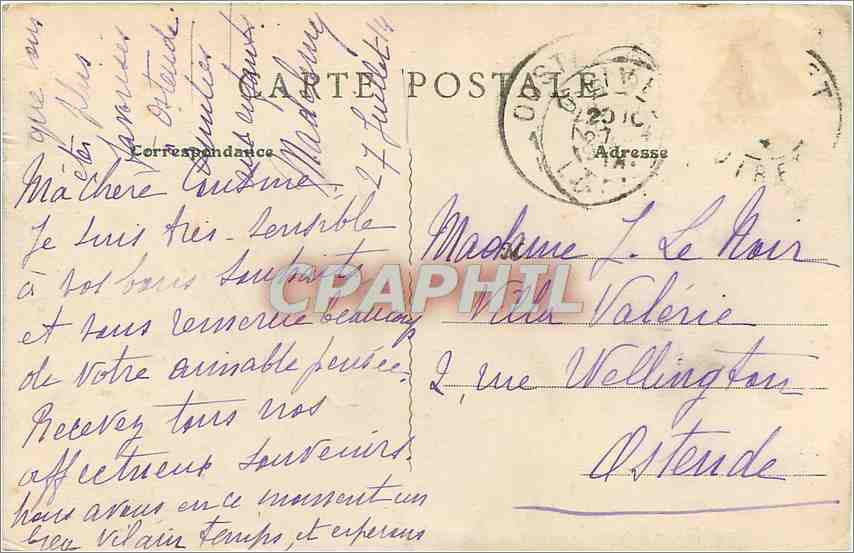 CARTE POSTALE
Correspondance
Adresse
Ma chère Cousine,
Je suis très sensible
à vos bons souhaits
et vous remercie beaucoup
de votre aimable pensée.
Recevez tous nos
affectueux souvenirs.
nous avons en ce moment un
bien vilain temps, et espérons
que vous
êtes plus
favorisés
à Ostende.
Amitiés
aux enfants
Madeleine
27 Juillet 14
Madame J. Le Noir
Villa Valérie
2, rue Wellington
Ostende
CPAPHIL